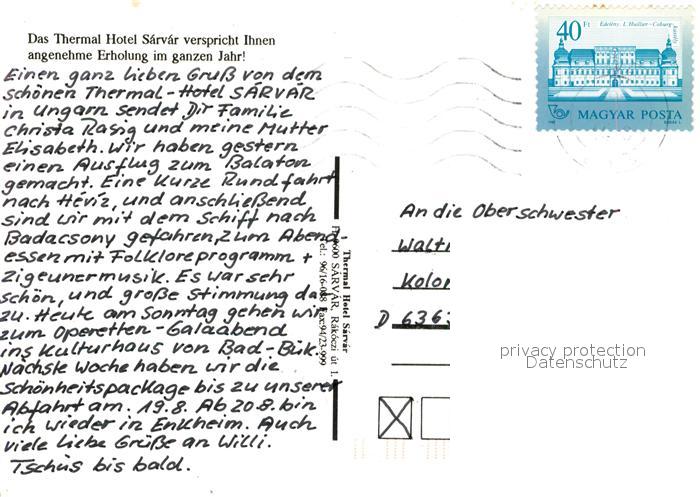 Das Thermal Hotel Sárvár verspricht Ihnen
angenehme Erholung im ganzen Jahr!
Einen ganz lieben Gruß von dem
schönen Thermal-Hotel SÁRVÁR
in Ungarn sendet Dir Familie
Christa Rasig und meine Mutter
Elisabeth. Wir haben gestern
einen Ausflug zum Balaton
gemacht. Eine kurze Rundfahrt
nach Héviz, und anschließend
sind wir mit dem Schiff nach
Badacsony gefahren, zum Abend-
essen mit Folkloreprogramm +
Zigeunermusik. Es war sehr
schön, und große Stimmung da-
zu. Heute am Sonntag gehen wir
zum Operetten-Galaabend
ins Kulturhaus von Bad-Bük.
Nächste Woche haben wir die
Schönheitspackage bis zu unserer
Abfahrt am. 19.8. Ab 20.8. bin
ich wieder in Enkheim. Auch
viele liebe Grüße an Willi.
Tschüs bis bald.
Thermal Hotel Sárvár
9600 SÁRVÁR, Rákóczi út 1.
Tel.: 96/16-088 Fax: 94/23-999
40 Ft
Edelény. L'Huillier-Coburg-
kastély
MAGYAR POSTA
An die Oberschwester
Walt
Kolo
D 636
privacy protection
Datenschutz